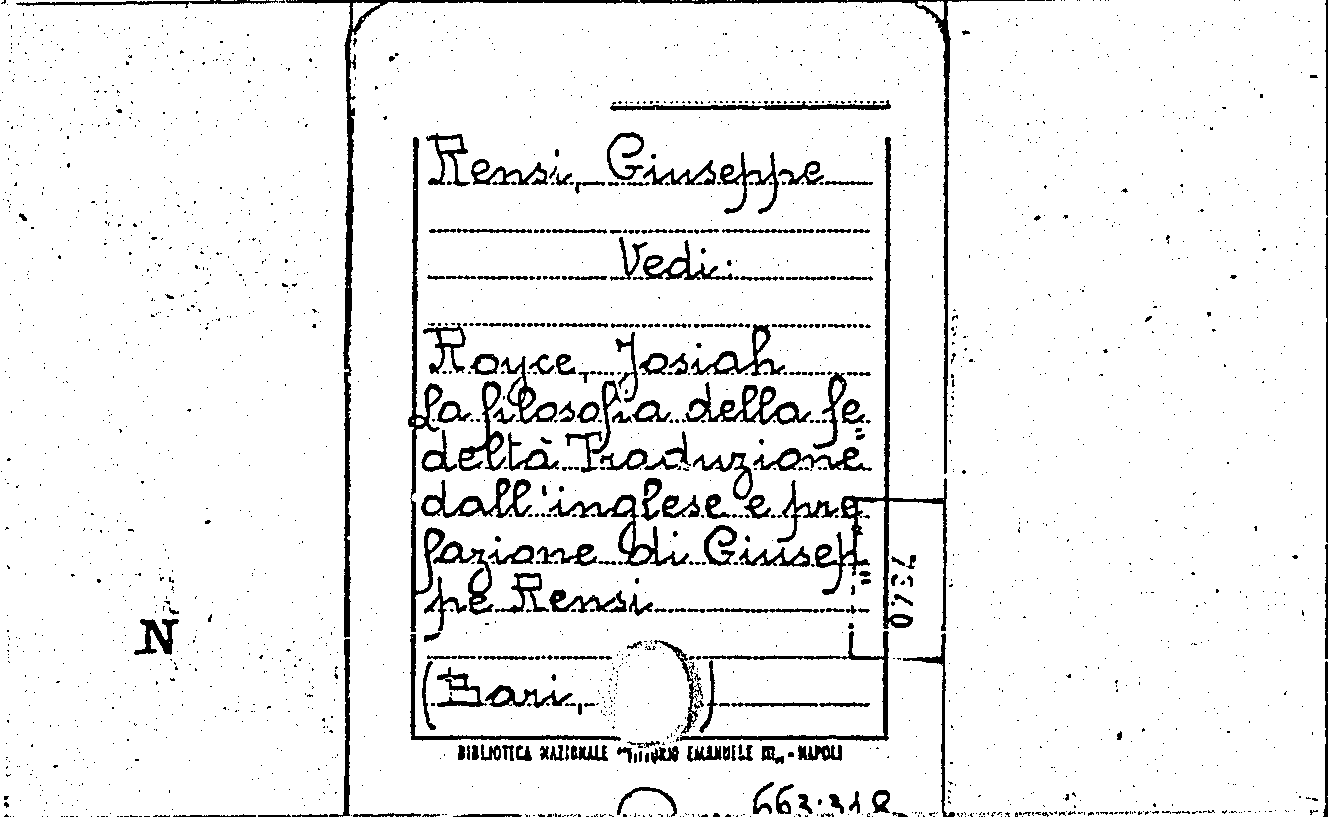 Rensi, Giuseppe
Vedi:
Royce, Josiah
La filosofia della fe
deltà Traduzione
dall'inglese e pre
fazione di Giusep
pe Rensi
(Bari, )
N
BIBLIOTECA NAZIONALE "VITTORIO EMANUELE III" - NAPOLI